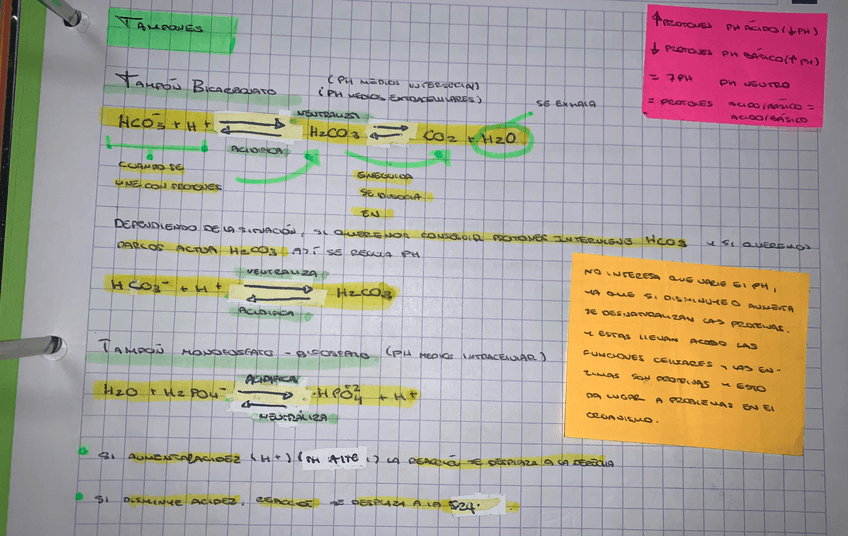 TAMPONES
TAMPÓN BICARBONATO
(PH MEDIOS INTERSTICIAL)
(PH MEDIOS EXTRACELULARES)
HCO3⁻ + H+ NEUTRALIZA ACIDIFICA H2CO3 CO2 + H2O
SE EXHALA
CUANDO SE
UNE CON PROTONES
ENSEGUIDA
SE DISOCIA
EN
DEPENDIENDO DE LA SITUACIÓN, SI QUEREMOS CONSEGUIR PROTONES INTERVIENE HCO3 Y SI QUEREMOS
DARLOS ACTUA H2CO3 ASÍ SE REGULA PH
NEUTRALIZA
HCO3⁻ + H+ H2CO3
ACIDIFICA
TAMPÓN MONOFOSFATO - BIFOSFATO (PH MEDIOS INTRACELULAR)
ACIDIFICA
H2O + H2PO4⁻ HPO4⁻² + H+
NEUTRALIZA
• SI AUMENTA ACIDEZ (H+) (PH ) LA REACCIÓN SE DESPLAZA A LA DERECHA
• SI DISMINUYE ACIDEZ, REACCIÓN SE DESPLAZA A LA IZQ.
↑ PROTONES PH ÁCIDO (↓PH)
↓ PROTONES PH BÁSICO (↑PH)
= 7PH PH NEUTRO
= PROTONES ACIDO/BÁSICO =
ACIDO/BÁSICO
NO INTERESA QUE VARIE EL PH,
YA QUE SI DISMINUYE O AUMENTA
SE DESNATURALIZAN LAS PROTEINAS.
Y ESTAS LLEVAN ACABO LAS
FUNCIONES CELULARES Y LAS EN-
ZIMAS SON PROTEINAS Y ESTO
DA LUGAR A PROBLEMAS EN EL
ORGANISMO.